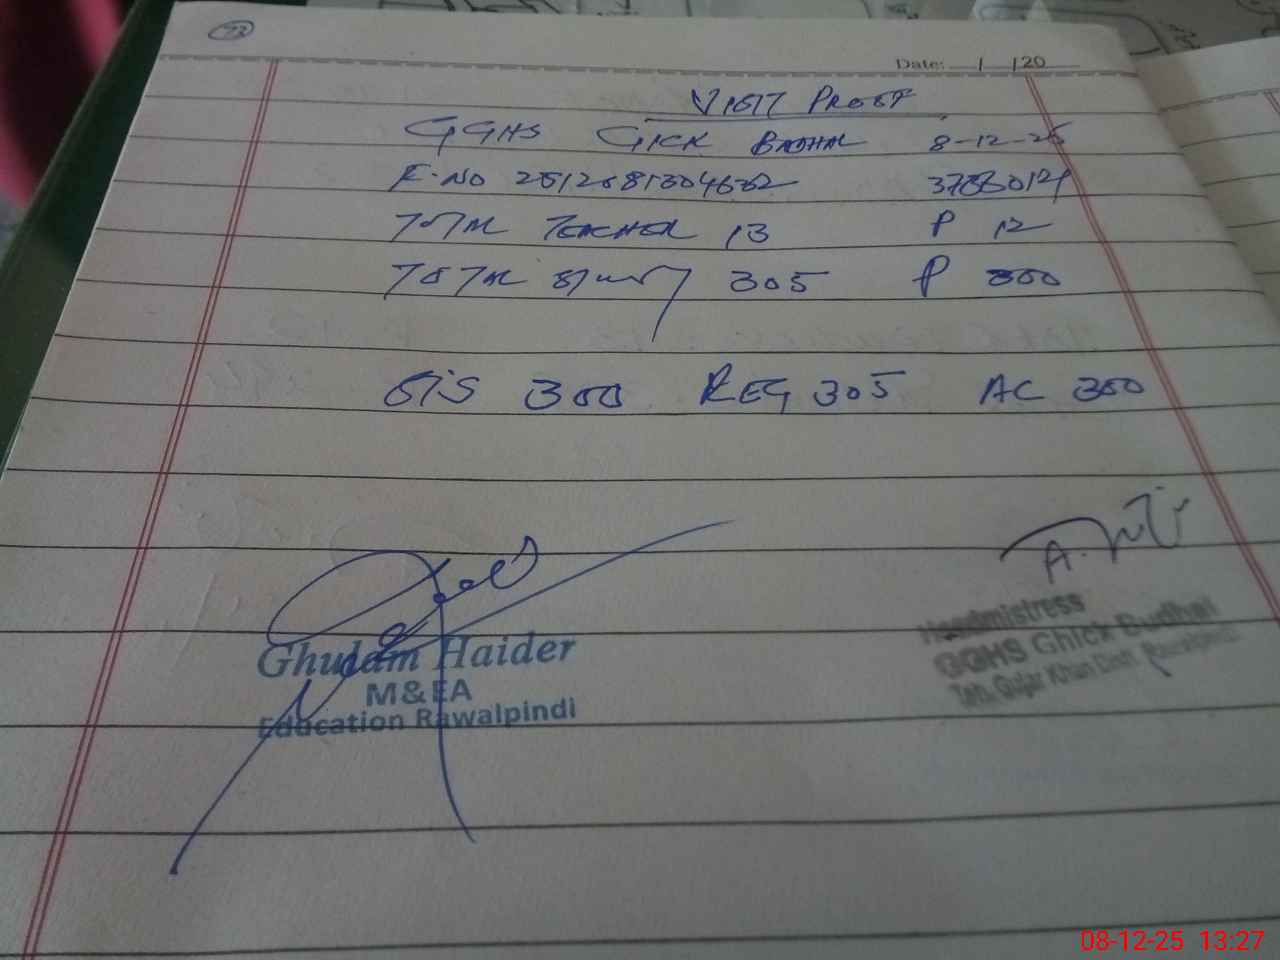 73
Date: / /20
VISIT PROOF
GGHS GICK BADHAL 8-12-25
F.NO
TOTAL TEACHER 13 P 12
TOTAL 305 P 300
SIS 300 REG 305 AC 300
A.
Ghulam Haider
M&EA
Education Rawalpindi
Headmistress
GGHS Ghick Budhal
Teh. Gujar Khan Distt. Rawalpindi
08-12-25 13:27